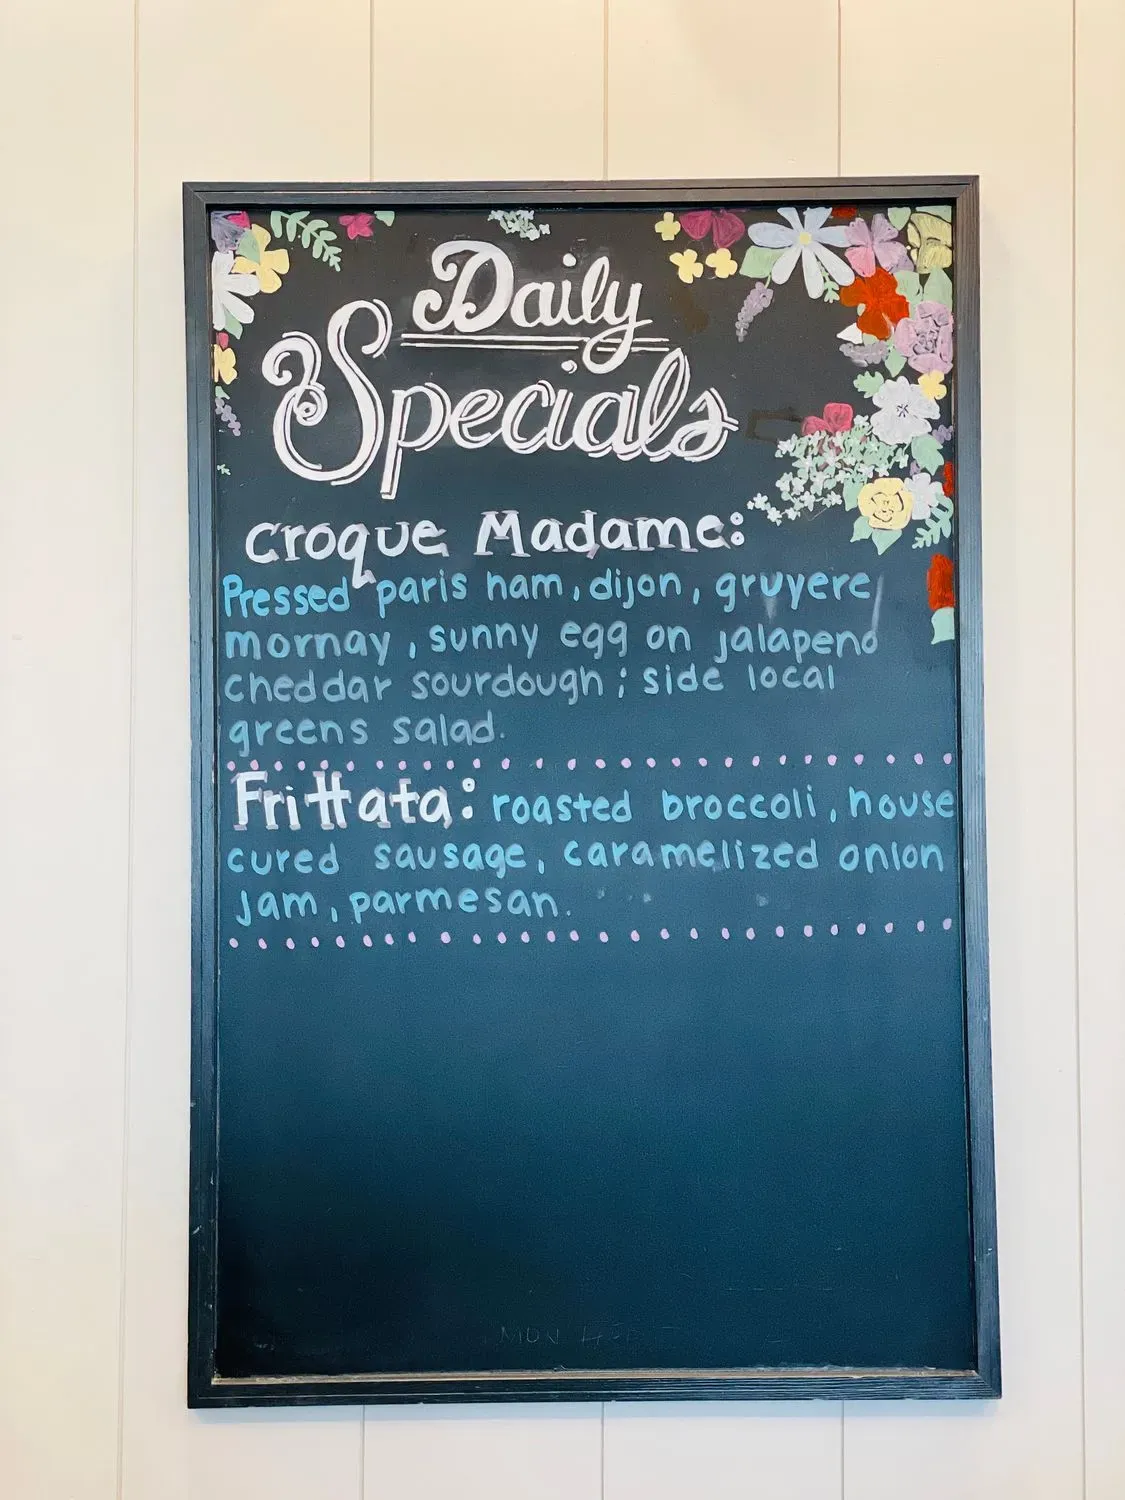 Daily
Specials
Croque Madame:
Pressed paris ham, dijon, gruyere
mornay, sunny egg on jalapeno
cheddar sourdough; side local
greens salad.
Frittata: roasted broccoli, house
cured sausage, caramelized onion
jam, parmesan.